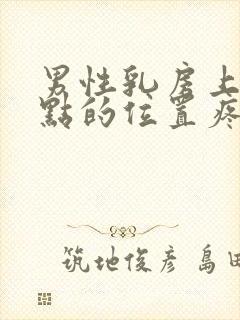 男性乳房上
點的位置疼
筑地俊彦 島田